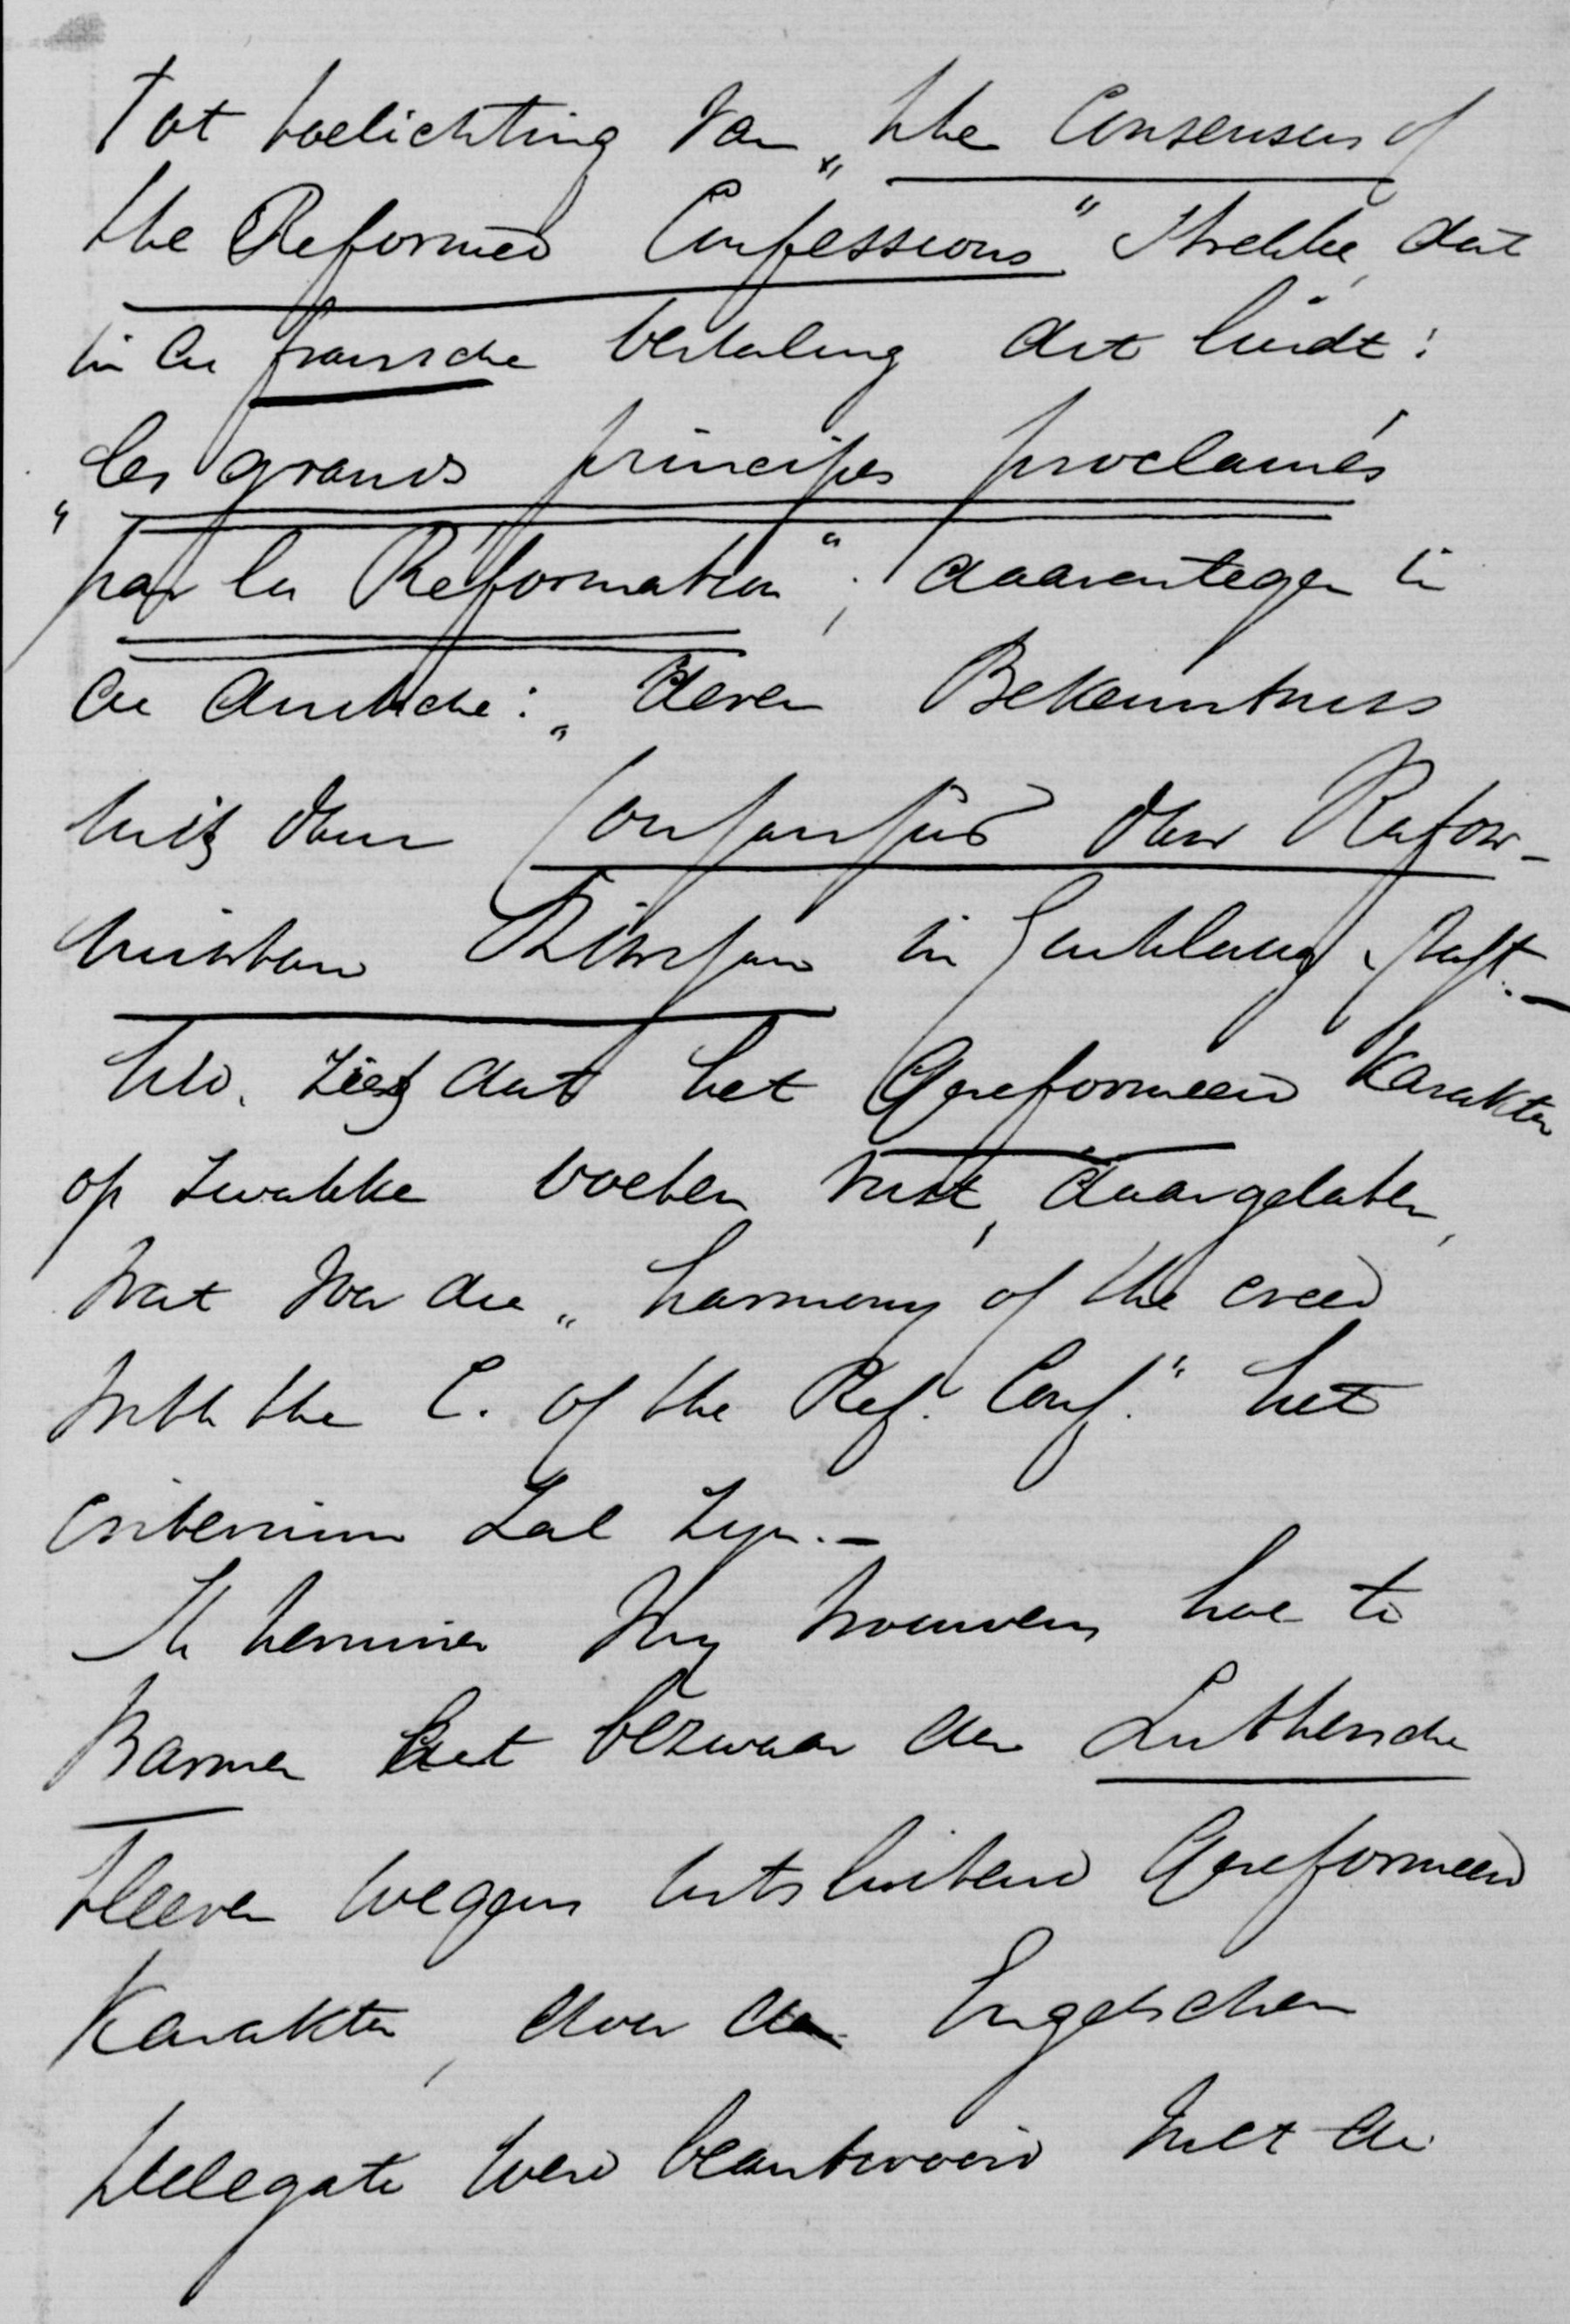 Tot toelichting van „the Consensus of
the Reformed Confessions" strekke, dat
in de fransche vertaling dit luidt:
„les grands principes proclamés
par la Réformation"; daarentegen in
de duitsche: „deren Bekenntniss
mit dem Consensus der Refor-
mirten Kirchen in Einklang steht.–
UEd. ziet dat het Gereformeerd Karakter
op zwakke voeten rust, daargelaten,
wat van die „harmony of the creed
with the C. of the Ref. Conf." het
criterium zal zijn.–
Ik herinner my trouwens hoe te
Barmen het bezwaar der Luthersche
Heeren wegens uitsluitend Gereformeerd
Karakter, door de Engelschen
Delegate werd beantwoord met de